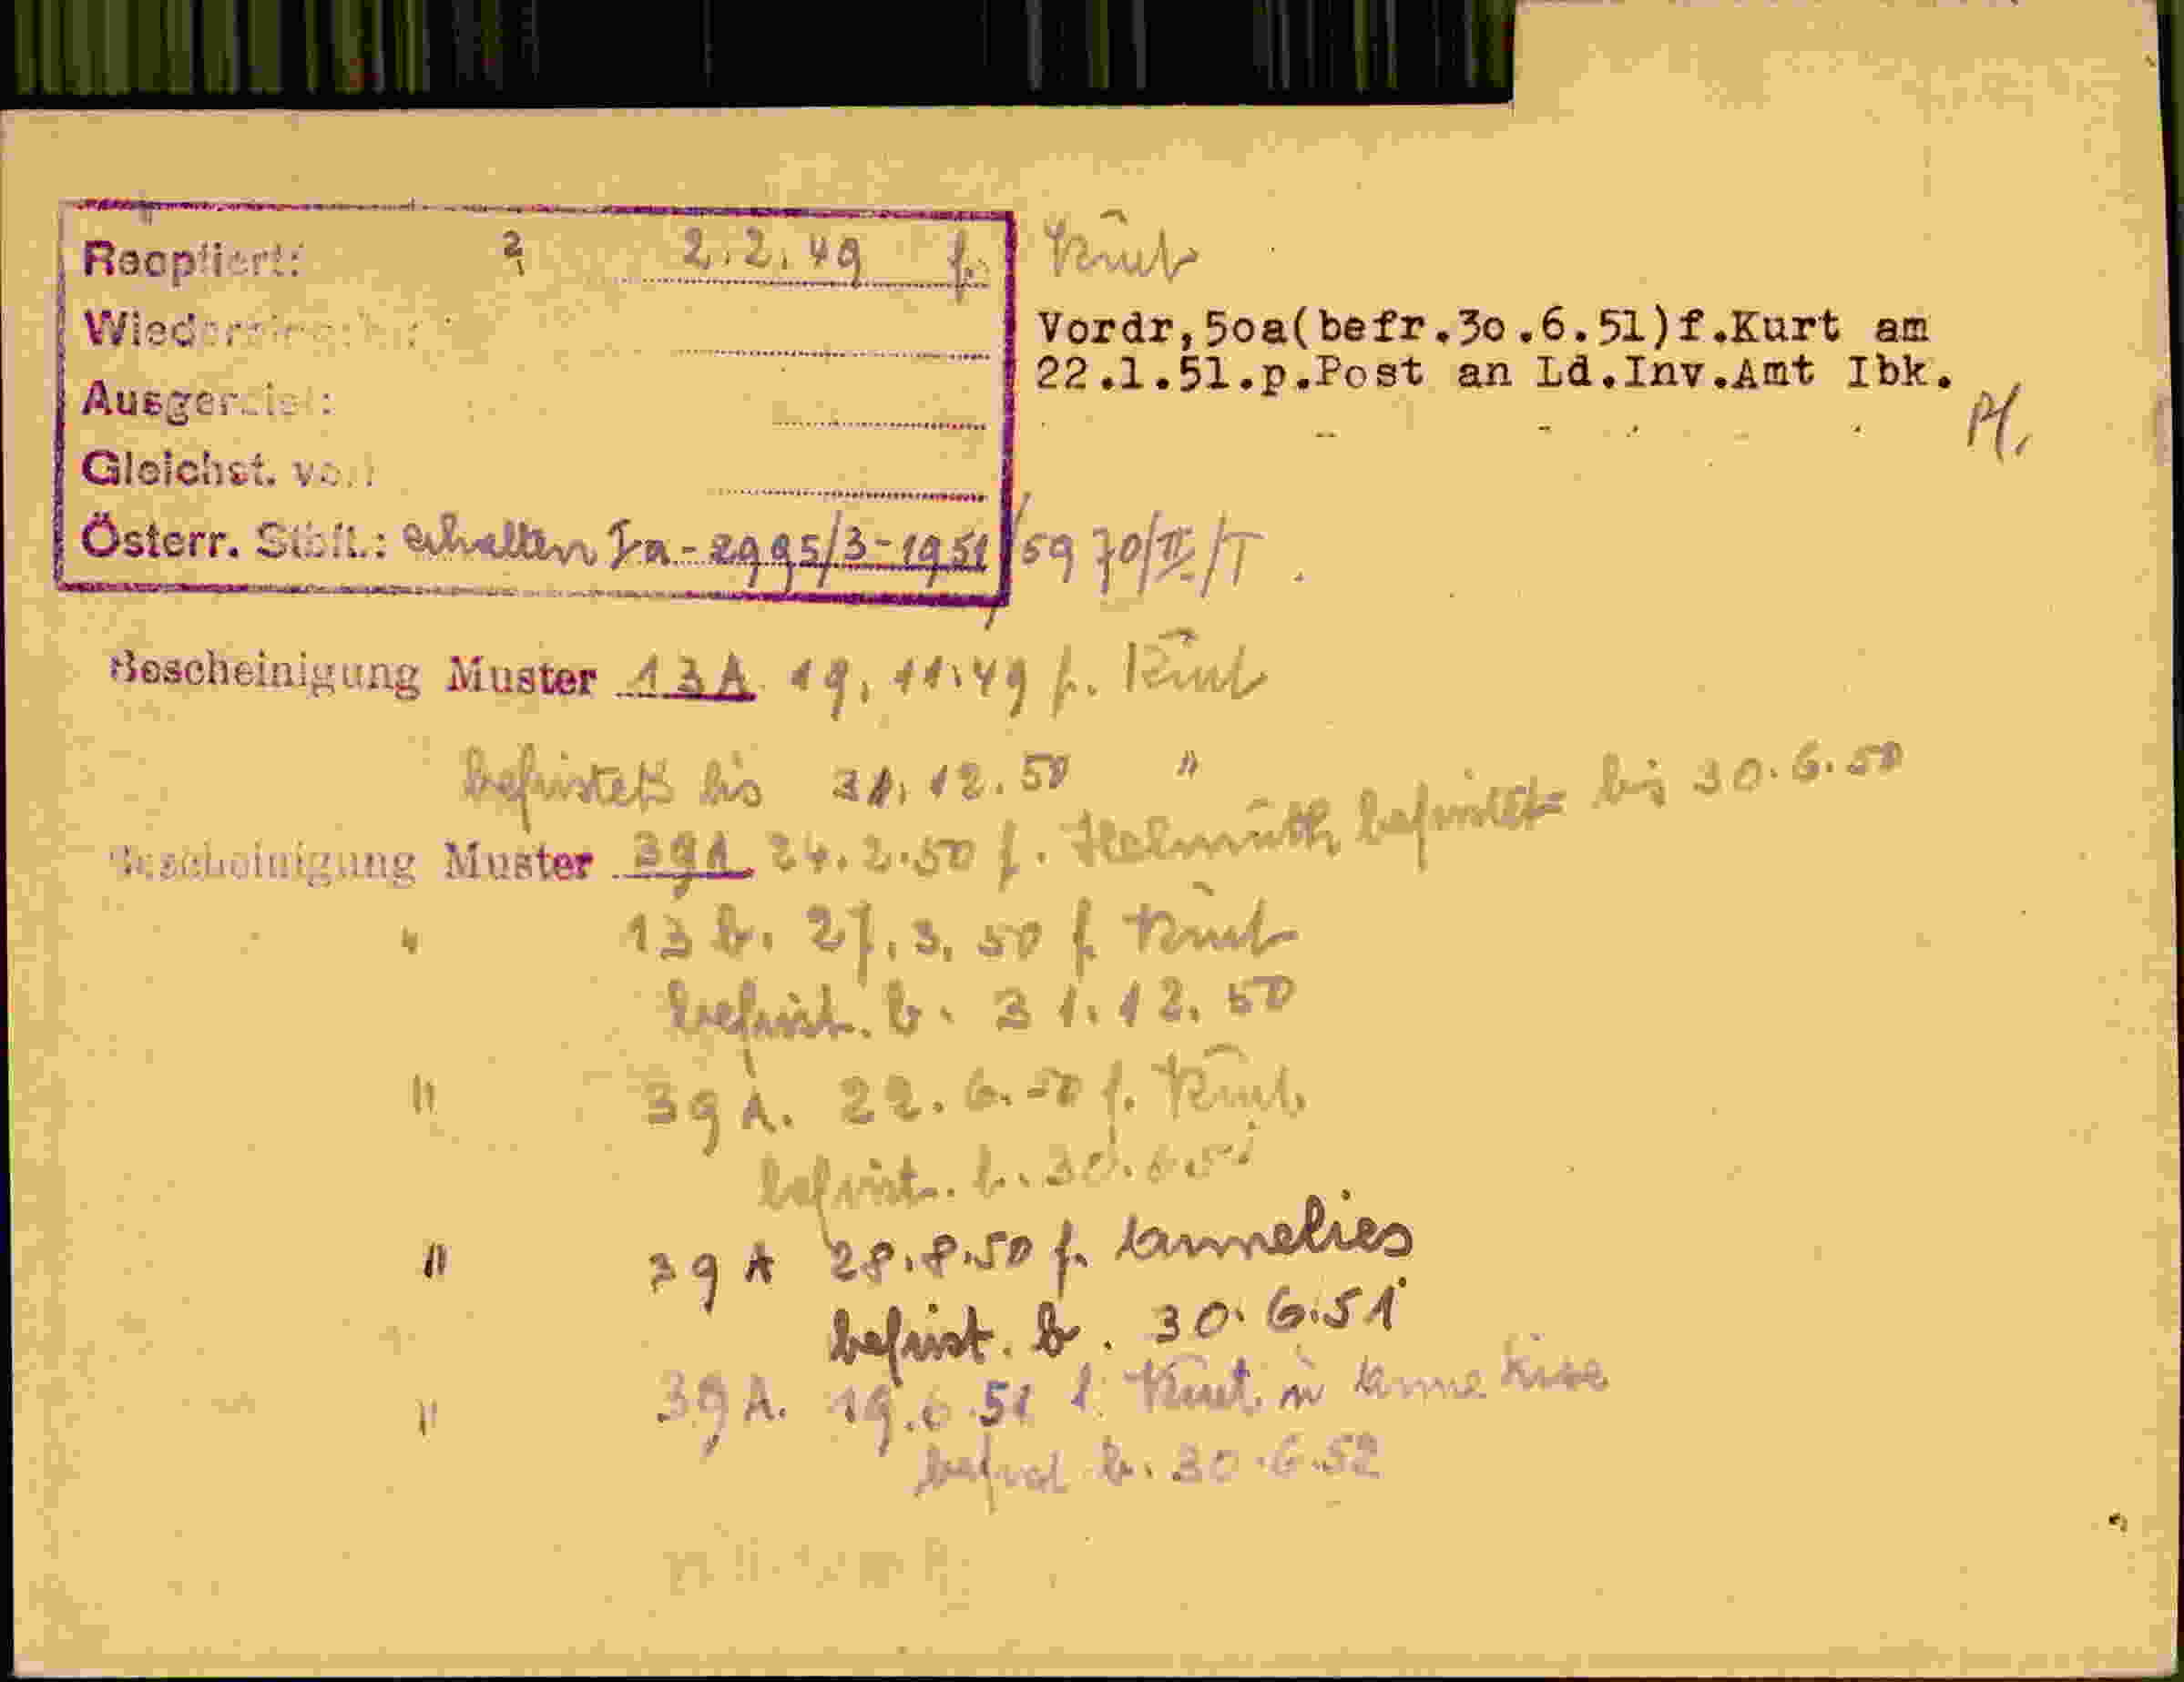 Reoptiert: 2, 2.2.49 f. Kurt
Vordr,5oa(befr.3o.6.51)f.Kurt am
22.1.51.p.Post an Ld.Inv.Amt Ibk.
Ausgereist:
Gleichst. von
Österr. Stbft.: erhalten Ia-2995/3-1951/5970/II/T.
Bescheinigung Muster 13A 19.11.49 f. Kurt
befristet bis 31.12.50 "
Bescheinigung Muster 39A 24.2.50 f. Helmuth befristet bis 30.6.50
" 13 b. 27.3.50 f. Kurt
befrist. b. 31.12.50
" 39 A. 22.6.50 f. Kurt
befrist. b. 30.6.51
" 39 A 28.8.50 f. Annelies
befrist. b. 30.6.51
" 39 A. 19.6.51 f. Kurt u Anneliese
befrist b. 30.6.52